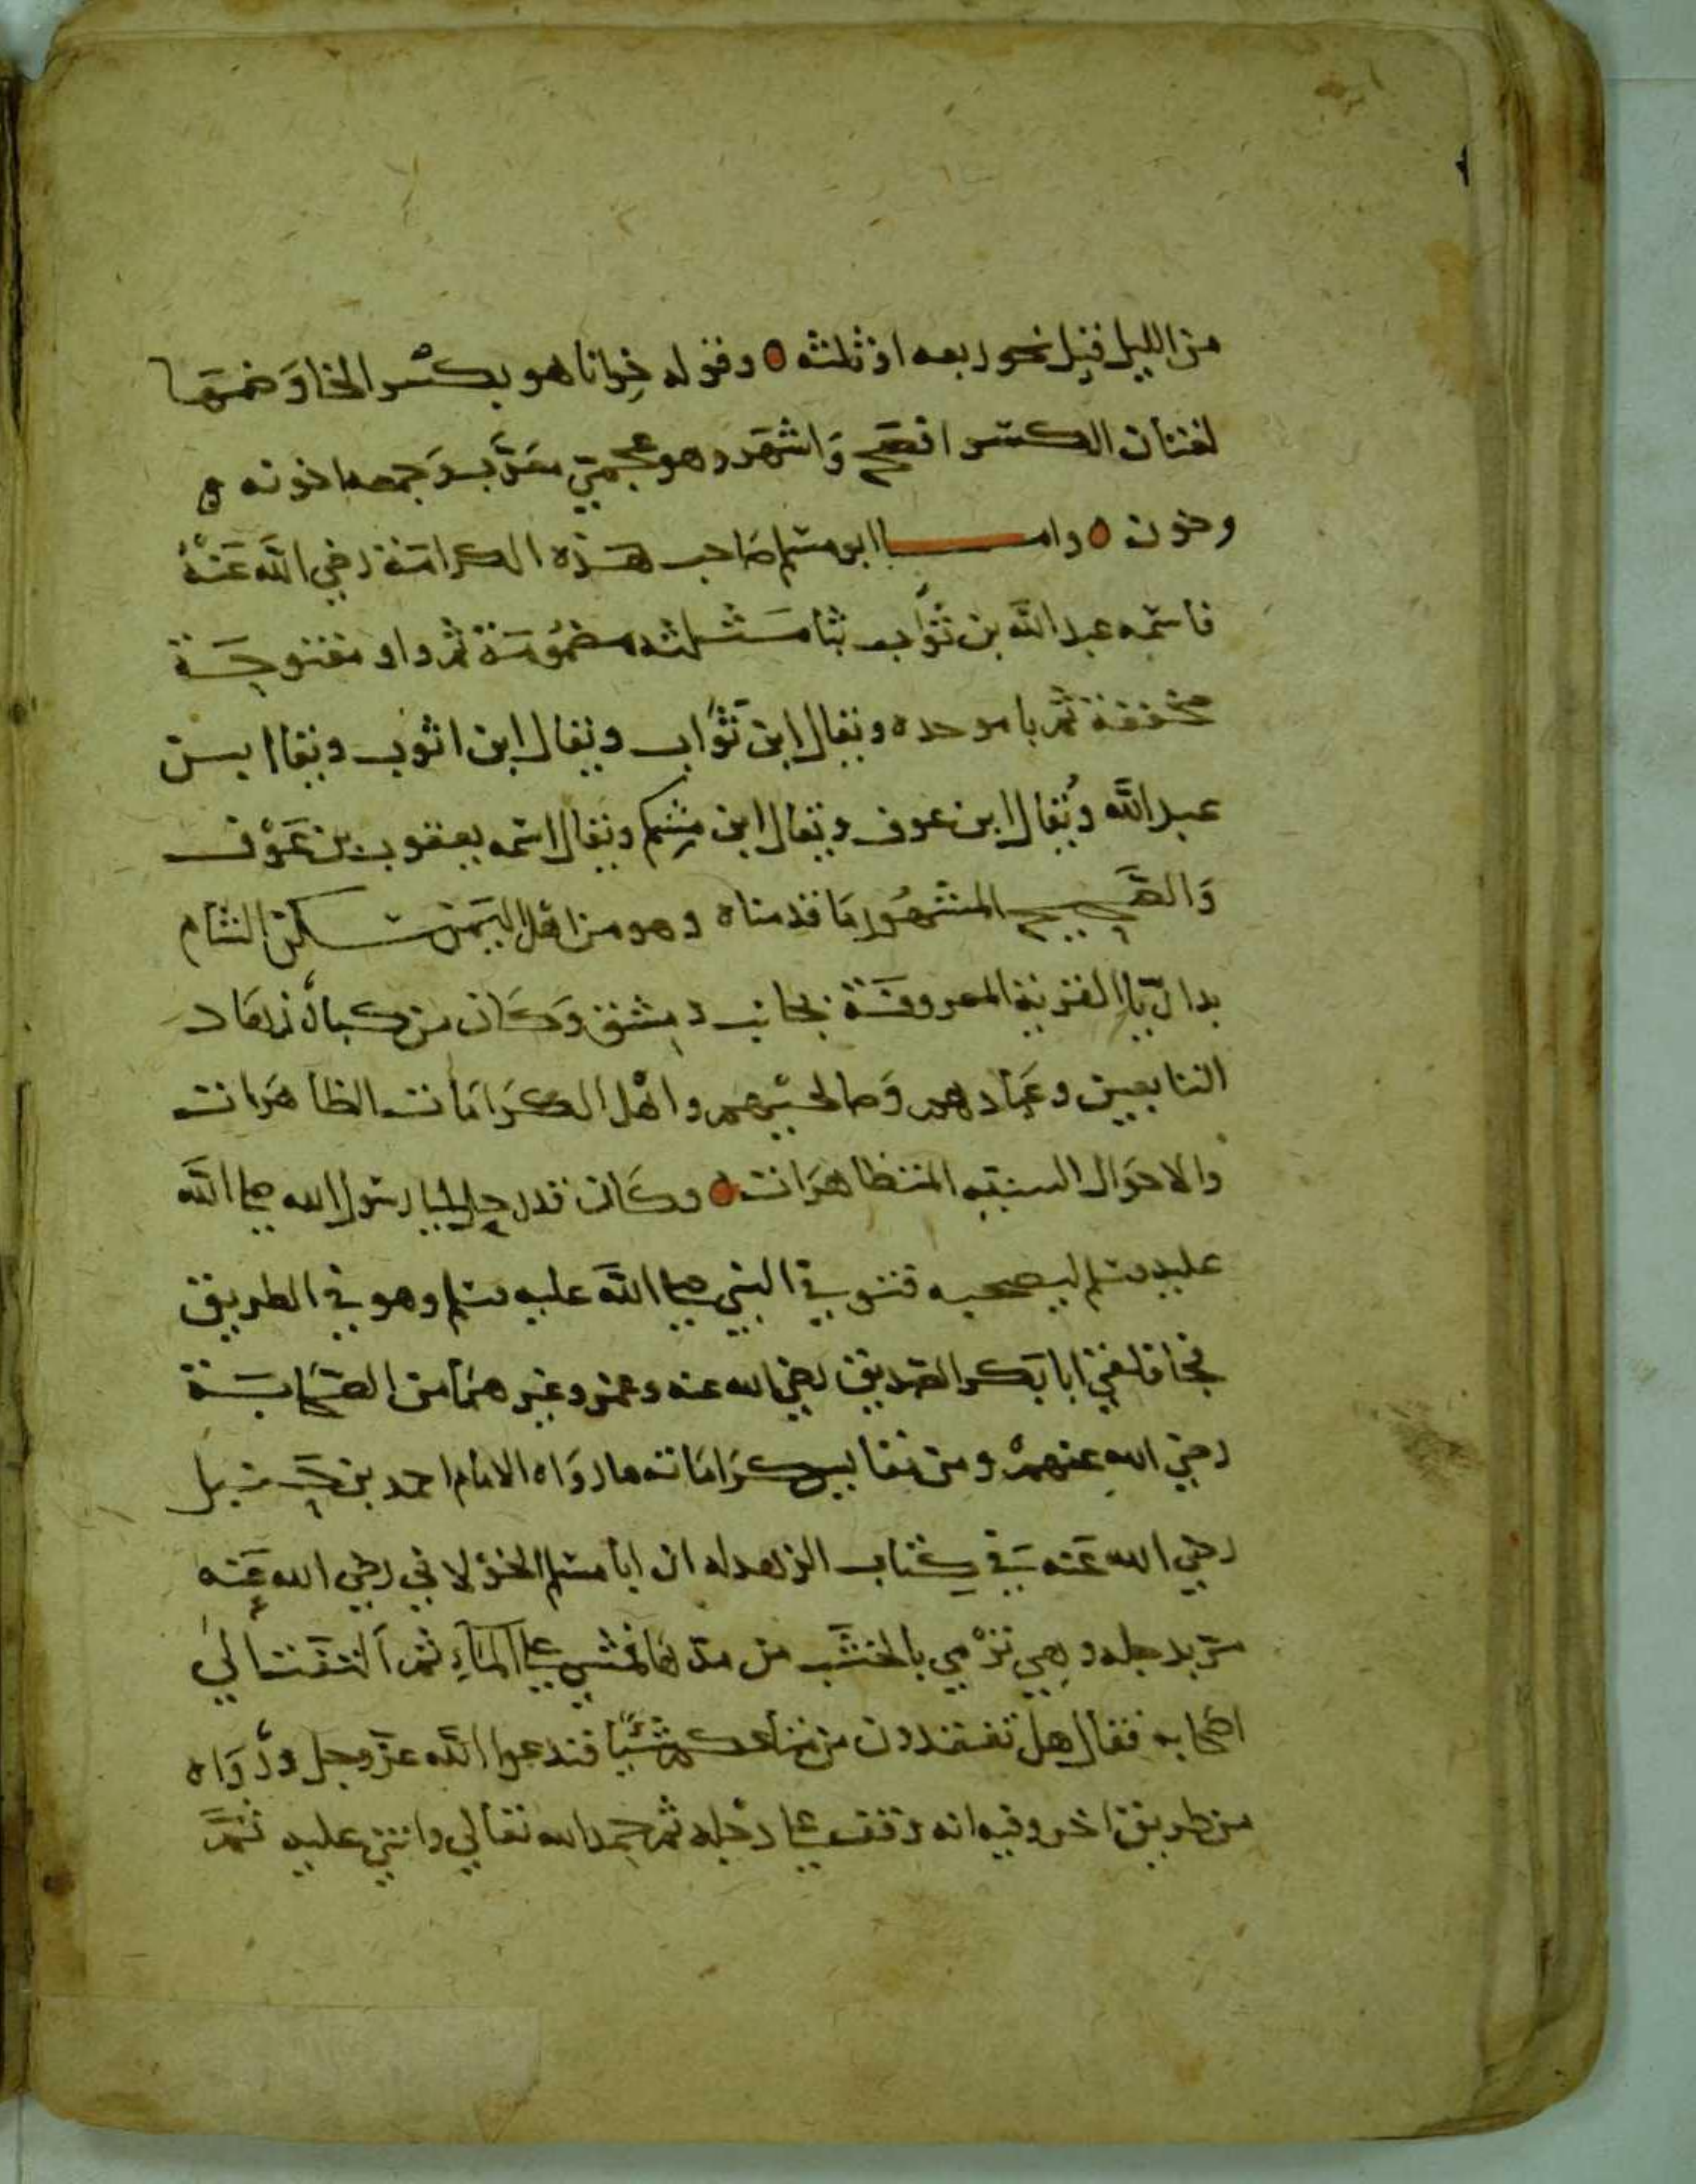 من الليل قيل نحو ربعه او ثلثه ه وقوله خِوانا هو بكسر الخا وَضمّها
لغتان الكسر افصح وَاشهَر وهو عجميّ معَرّب وَجمعه اخونه ه
وخون ه واما ابو مسلم صَاحب هَذه الكرامَة رَضي الله عَنْهُ
فاسمه عبد الله بن ثُوَاب بثا مَثلثه مضمُومَة ثم واو مفتوحَة
مخففة ثم با موحده ويقال ابن ثَوَاب ويقال ابن اثوب ويقال ابن
عبد الله وَيُقال ابن عوف ويقال ابن مِشكم ويقال اسمه يعقوب بن عَوْف
وَالصَّحيح المشهُور مَا قدمناه وهو من اهل اليَمَن سَكن الشام
بدارَيّا القرية المعروفَة بجانب دِمشق وَكَان من كبار زهاد
التابعين وعبَادهم وَصالحيْهم واهْل الكرَامَات الظاهرَات
والاحوَال السنيّه المتظاهرَات ه وكَان قد رحل الى رسُول الله صلى الله
عليه وسلم ليصحبه فتوفي النبي صلى الله عليه وسلم وهو في الطريق
فجا فلقي ابا بكر الصّديق رضي الله عنه وعمر وغيرهمَا من الصحَابَة
رضي الله عنهمْ ومن نفايس كرَامَاته ما روَاه الامام احمد بن حَنبل
رضي الله عَنه في كِتاب الزهد له ان ابا مسلم الخولاني رضي الله عَنه
مرّ بدجله وهِي ترْمي بالخشَب من مدّها فمشي على الماءِ ثم التفت الي
اصحابه فقال هل تفقدون من متاعكم شَيْئًا فتدعوا الله عزّ وجل ورُوَاه
من طريق اخر وفيه انه وَقف على دجله ثم حمد الله تعالي واثني عليه ثمَّ